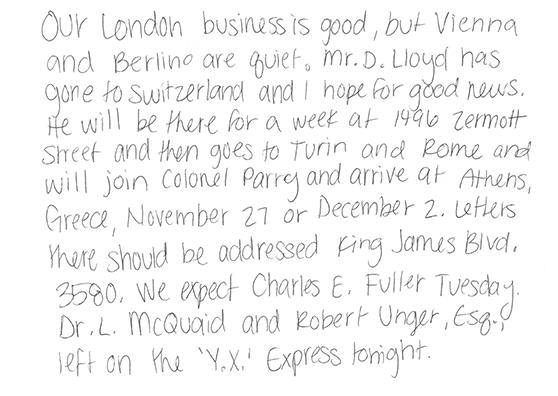 Our London business is good, but Vienna
and Berlino are quiet. Mr. D. Lloyd has
gone to Switzerland and I hope for good news.
He will be there for a week at 1496 Zermott
Street and then goes to Turin and Rome and
will join Colonel Parry and arrive at Athens,
Greece, November 27 or December 2. Letters
there should be addressed King James Blvd.
3580. We expect Charles E. Fuller Tuesday.
Dr. L. McQuaid and Robert Unger, Esq.,
left on the 'Y.X.' Express tonight.